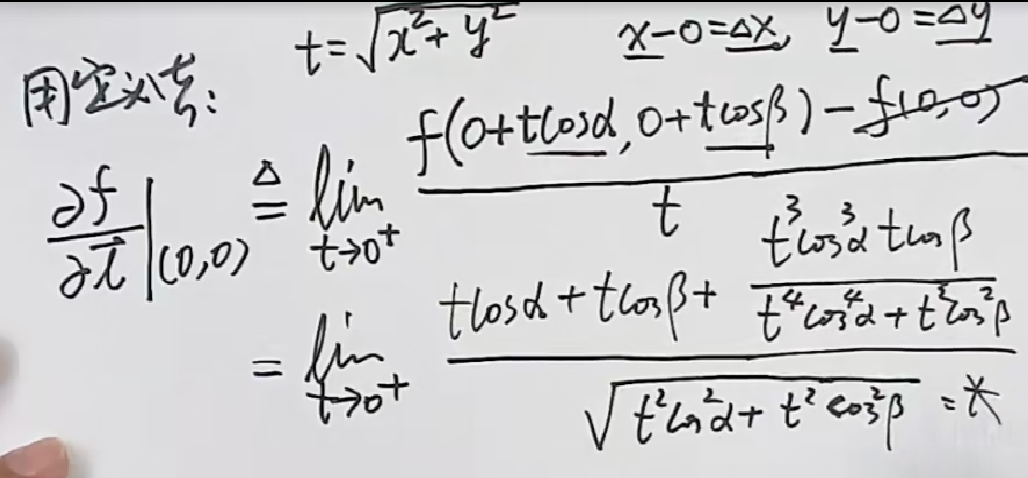 t=√(x²+y²) x-0=Δx, y-0=Δy
用定义求:
∂f/∂l⃗|(0,0) ≜ lim t→0⁺ (f(0+tcosα, 0+tcosβ)-f(0,0))/t
= lim t→0⁺ (tcosα+tcosβ+(t³cos³α tcosβ)/(t⁴cos⁴α+t²cos²β))/√(t²cos²α+t²cos²β) =t